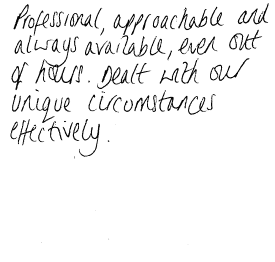 Professional, approachable and
always available, even out
of hours. Dealt with our
unique circumstances
effectively.